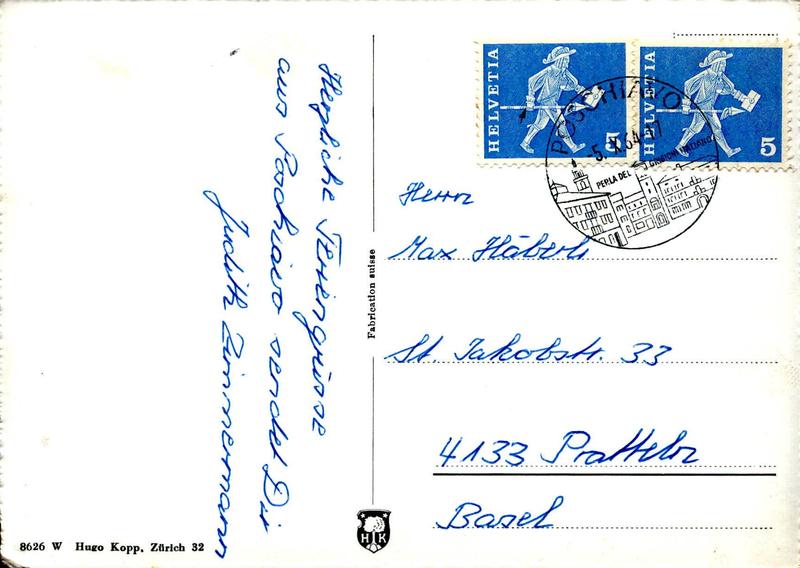 Herzliche Feriengrüsse
aus Poschiavo sendet Dir
Judith Zimmermann
8626 W Hugo Kopp, Zürich 32
Fabrication suisse
HK
HELVETIA
5
HELVETIA
5
POSCHIAVO
-5.X.64-17
PERLA DEL GRIGIONI ITALIANO
Herrn
Max Häberli
St. Jakobstr. 33
4133 Pratteln
Basel